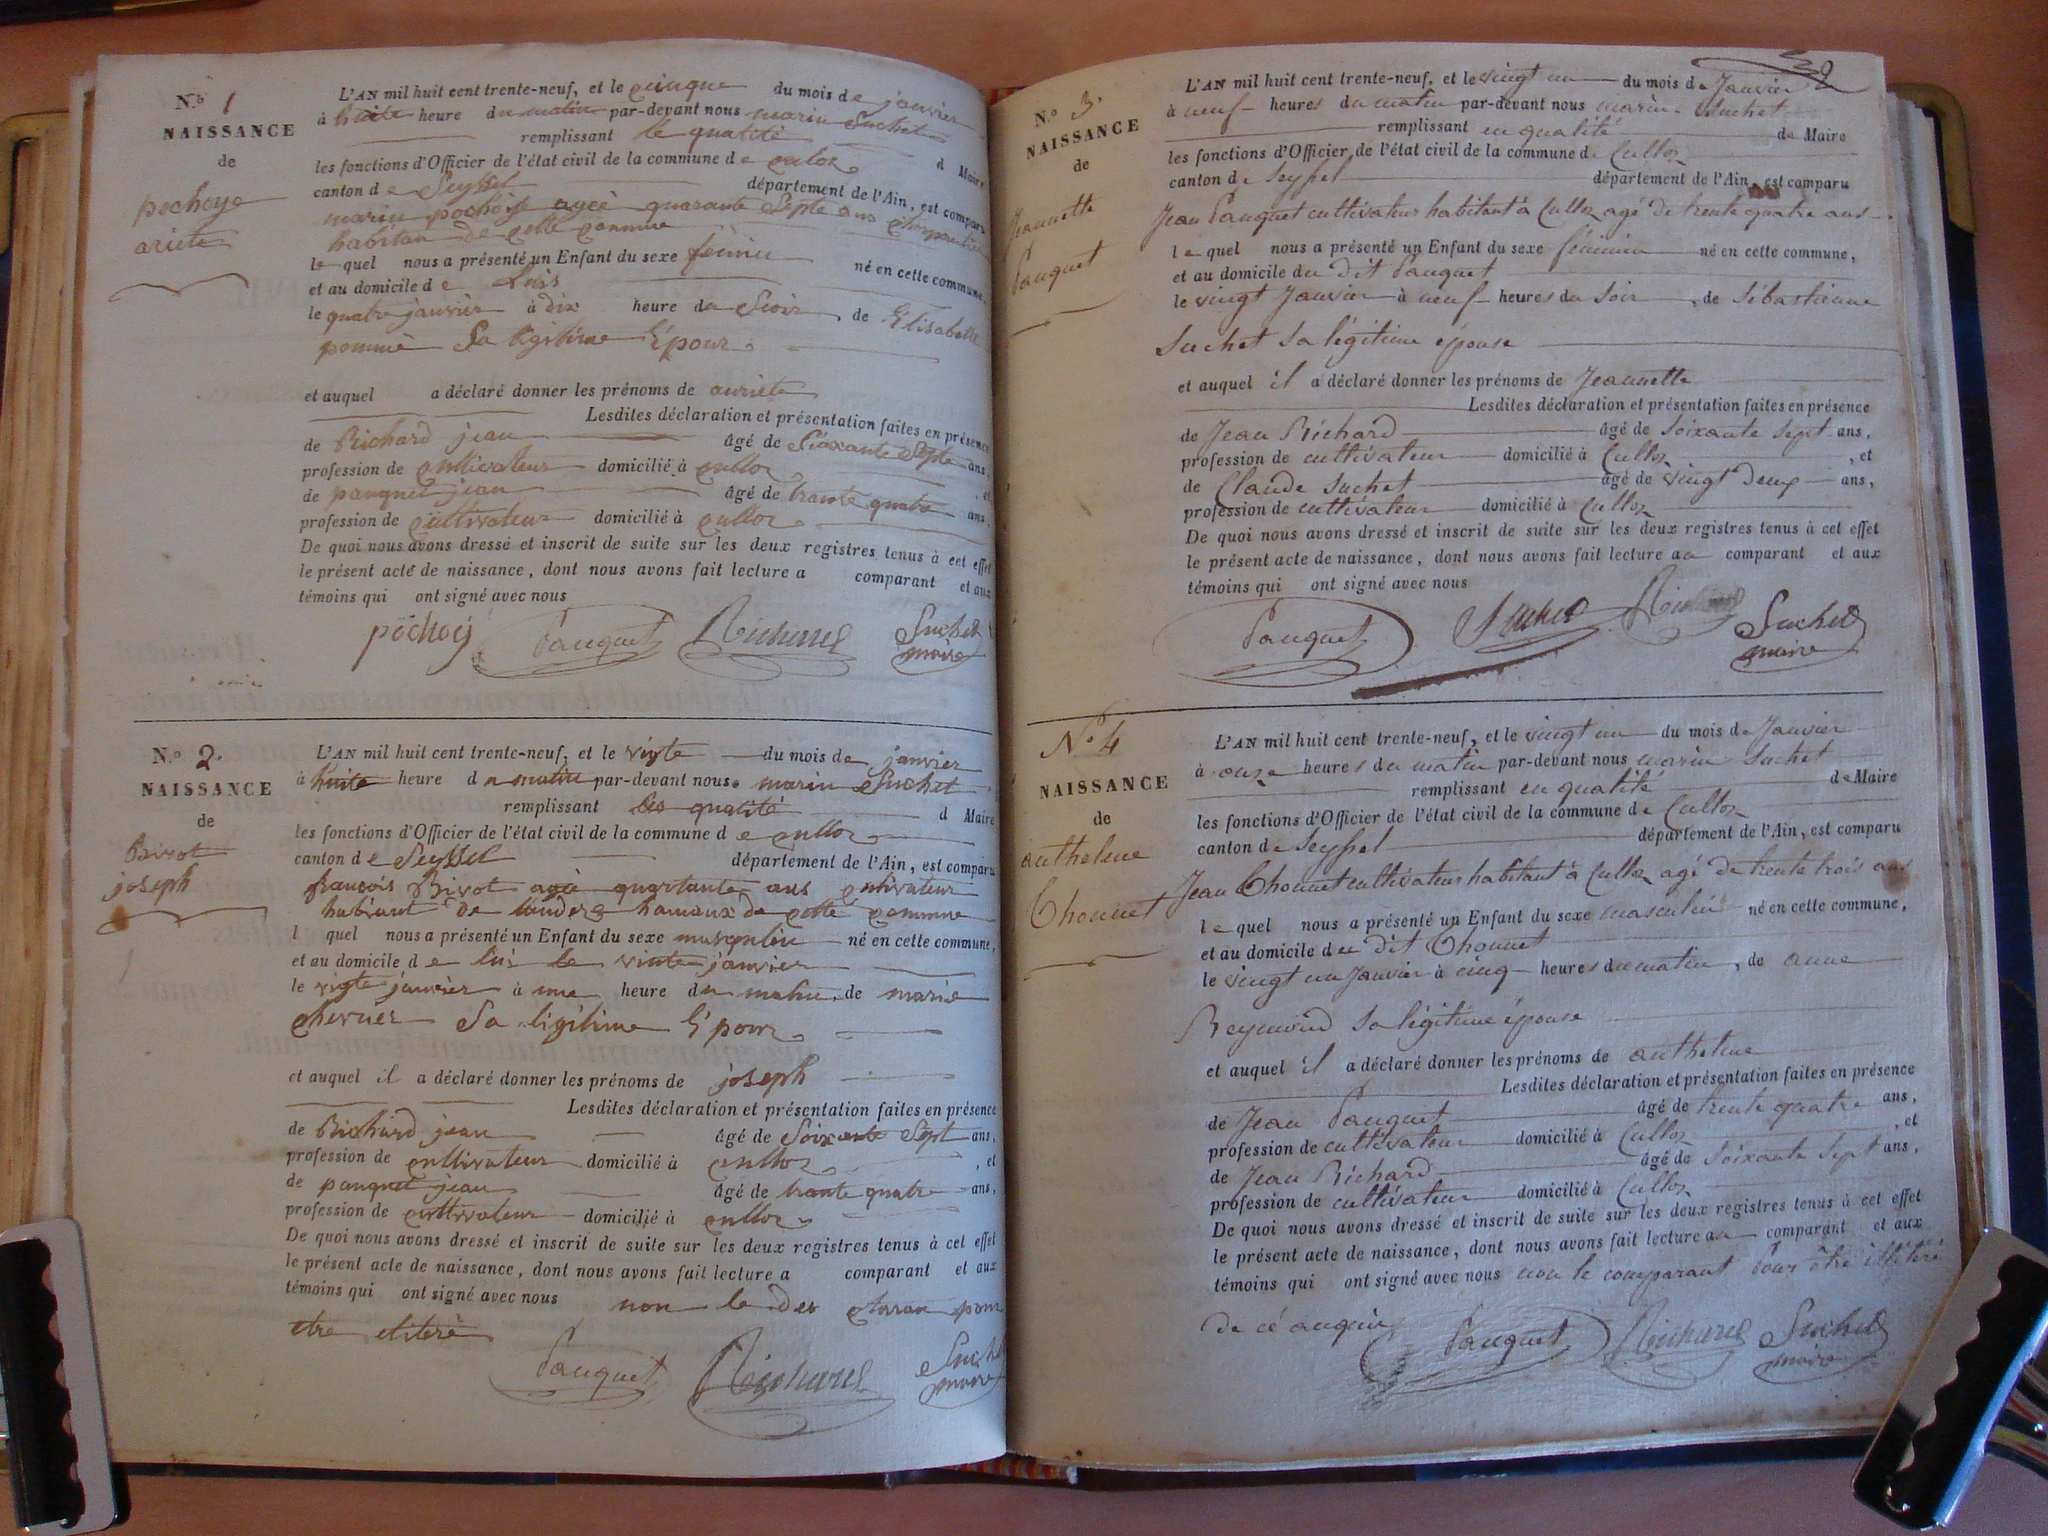 N.º 1
NAISSANCE
de
pochoye
ariete
L'AN mil huit cent trente-neuf, et le cinque du mois de janvier
à huite heure du matin par-devant nous marin Suchet
remplissant le qualité d Maire
les fonctions d'Officier de l'état civil de la commune de culoz
canton de Seyssel département de l'Ain, est comparu
marin pochoye agée quarante Septe ans
habitan de cette commune
le quel nous a présenté un Enfant du sexe feminu né en cette commune,
et au domicile de Luis
le quatre janvier à dix heure du Soir, de Elisabette
pommié Sa ligitime Epour
et auquel a déclaré donner les prénoms de auriete
Lesdites déclaration et présentation faites en présence
de Richard jean âgé de Soixante Septe ans,
profession de cultivateur domicilié à culloz , et
de pauquet jean âgé de trante quatre ans,
profession de cultivateur domicilié à culloz
De quoi nous avons dressé et inscrit de suite sur les deux registres tenus à cet effet
le présent acte de naissance, dont nous avons fait lecture a comparant et aux
témoins qui ont signé avec nous
pochoy Pauquet Richard Suchet
maire
N.º 2.
NAISSANCE
de
Bivot
joseph
L'AN mil huit cent trente-neuf, et le vinte du mois de janvier
à huite heure du matin par-devant nous marin Suchet
remplissant les qualité d Maire
les fonctions d'Officier de l'état civil de la commune de culloz
canton de Seyssel département de l'Ain, est comparu
francois Bivot agée quartante ans cultivateur
habitant de landerz hamaux de cette commune
l quel nous a présenté un Enfant du sexe masculin né en cette commune,
et au domicile de lui le vinte janvier
le vinte janvier à une heure du matin, de marie
chervier Sa ligitime Epour
et auquel il a déclaré donner les prénoms de joseph
Lesdites déclaration et présentation faites en présence
de Richard jean âgé de Soixante Sept ans,
profession de cultivateur domicilié à culloz , et
de pauquet jean âgé de trante quatre ans,
profession de cultivateur domicilié à culloz
De quoi nous avons dressé et inscrit de suite sur les deux registres tenus à cet effet
le présent acte de naissance, dont nous avons fait lecture a comparant et aux
témoins qui ont signé avec nous non le pour
etre eliteré
Pauquet Richard Suchet
maire
N.º 3.
NAISSANCE
de
Jeannette
Pauquet
L'AN mil huit cent trente-neuf, et le vingt un du mois de Janvier
à neuf heures du matin par-devant nous marin Suchet
remplissant en qualité de Maire
les fonctions d'Officier de l'état civil de la commune de Culloz
canton de Seyssel département de l'Ain, est comparu
Jean Pauquet cultivateur habitant à Culloz agé de trente quatre ans
le quel nous a présenté un Enfant du sexe féminin né en cette commune,
et au domicile du dit Pauquet
le vingt Janvier à neuf heures du soir, de Sébastienne
Suchet sa légitime épouse
et auquel il a déclaré donner les prénoms de Jeannette
Lesdites déclaration et présentation faites en présence
de Jean Richard âgé de soixante sept ans,
profession de cultivateur domicilié à Culloz , et
de Claude Suchet âgé de vingt deux ans,
profession de cultivateur domicilié à Culloz
De quoi nous avons dressé et inscrit de suite sur les deux registres tenus à cet effet
le présent acte de naissance, dont nous avons fait lecture au comparant et aux
témoins qui ont signé avec nous
Pauquet Suchet Richard Suchet
maire
Nº 4
NAISSANCE
de
anthelme
Chonnet
L'AN mil huit cent trente-neuf, et le vingt un du mois de Janvier
à onze heures du matin par-devant nous marin Suchet
remplissant en qualité de Maire
les fonctions d'Officier de l'état civil de la commune de Culloz
canton de Seyssel département de l'Ain, est comparu
Jean Chonnet cultivateur habitant à Culloz agé de trente trois ans
le quel nous a présenté un Enfant du sexe masculin né en cette commune,
et au domicile du dit Chonnet
le vingt un Janvier à cinq heures du matin, de anne
Reymond sa légitime épouse
et auquel il a déclaré donner les prénoms de anthelme
Lesdites déclaration et présentation faites en présence
de Jean Pauquet âgé de trente quatre ans,
profession de cultivateur domicilié à Culloz , et
de Jean Richard âgé de soixante sept ans,
profession de cultivateur domicilié à Culloz
De quoi nous avons dressé et inscrit de suite sur les deux registres tenus à cet effet
le présent acte de naissance, dont nous avons fait lecture au comparant et aux
témoins qui ont signé avec nous non le comparant pour être illétéré
de ce anquis
Pauquet Richard Suchet
maire